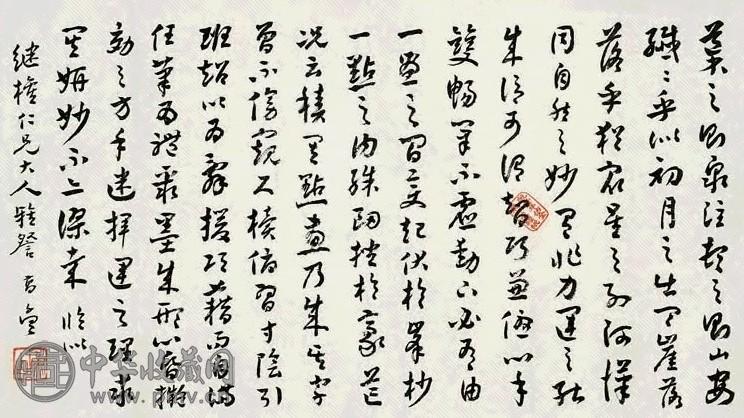 導之則泉注頓之則山安
纖〻乎似初月之出天崖落
落乎猶眾星之列河漢
同自然之妙有非力運之能
成信可謂智巧兼優心手
雙暢筆不虛動下必有由
一畫之間變起伏於峯杪
一點之內殊衄挫於豪芒
況云積其點畫乃成其字
曾不傍窺尺牘俯習寸陰引
班超以為辭援項籍而自滿
任筆為體聚墨成形心昏擬
効之方手迷揮運之理求
其妍妙不亦謬哉 臨以
继權仁兄大人雅詧
中华收藏网